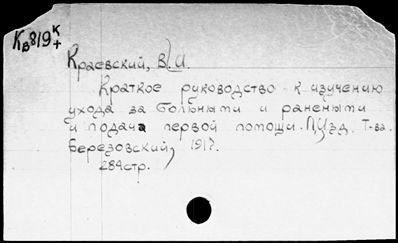 Кв819 К+
Краевский, В.И.
Краткое руководство к изучению
ухода за больными и ранеными
и подача первой помощи. П, Изд. Т-ва.
Березовский, 1917.
284стр.